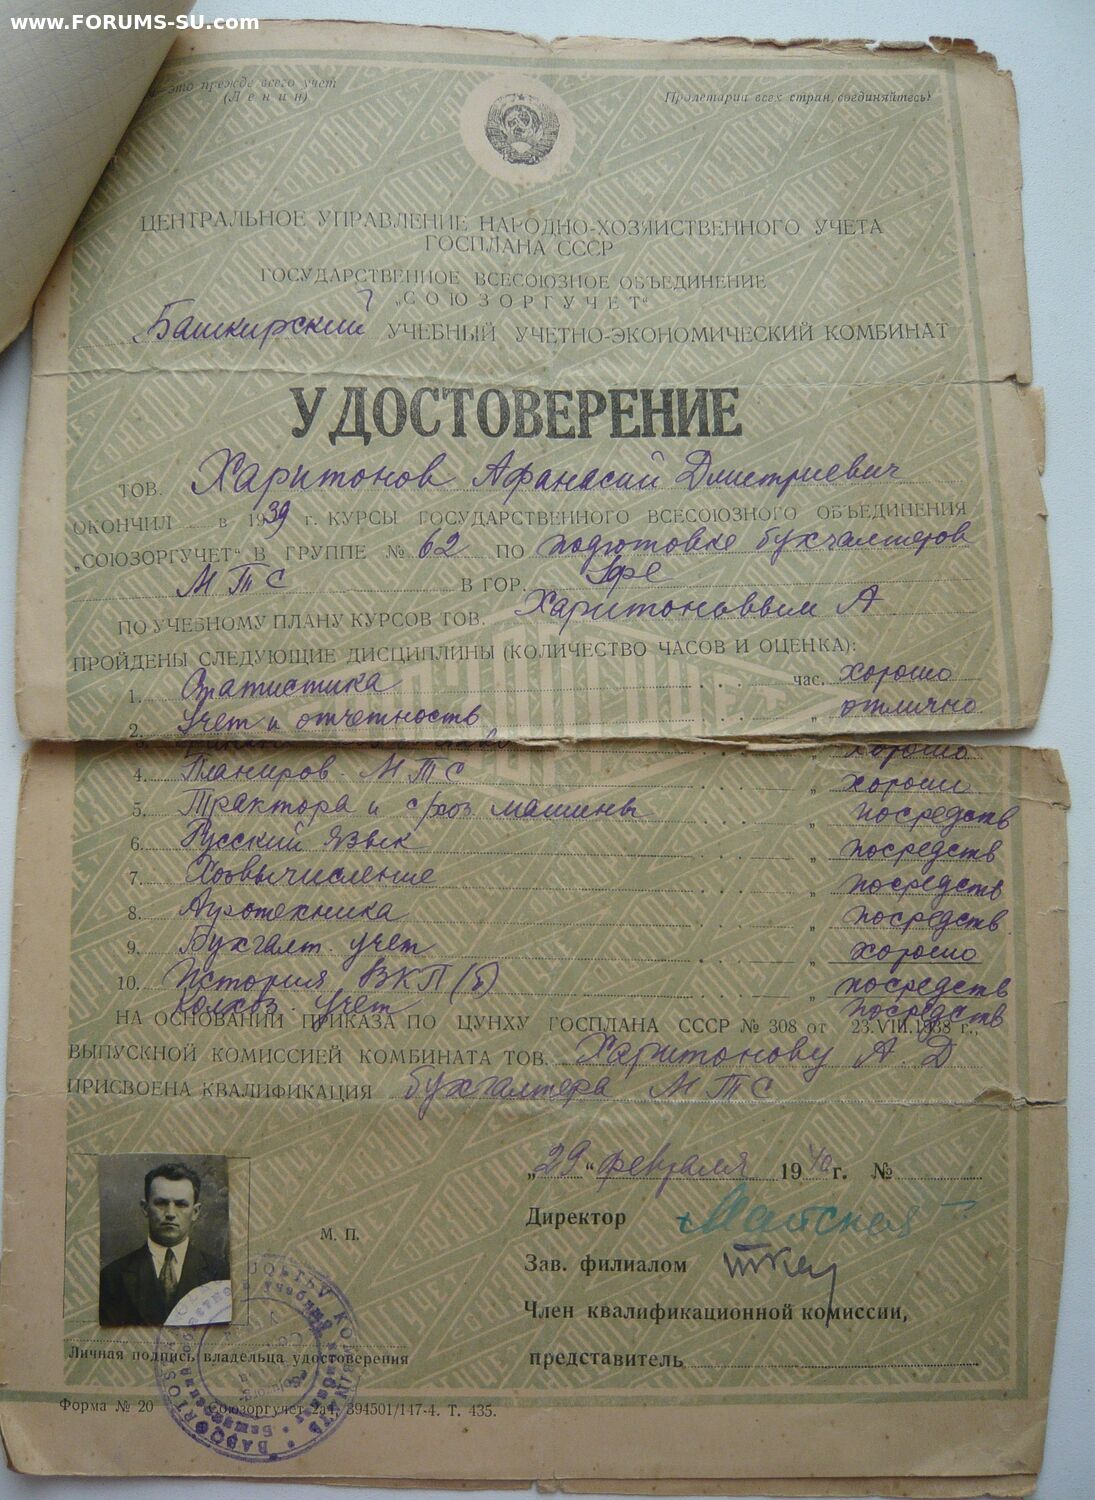 www.FORUMS-SU.com
это прежде всего учет
(Ленин)
Пролетарии всех стран, соединяйтесь!
ЦЕНТРАЛЬНОЕ УПРАВЛЕНИЕ НАРОДНО-ХОЗЯЙСТВЕННОГО УЧЕТА
ГОСПЛАНА СССР
ГОСУДАРСТВЕННОЕ ВСЕСОЮЗНОЕ ОБЪЕДИНЕНИЕ
„СОЮЗОРГУЧЕТ“
Башкирский УЧЕБНЫЙ УЧЕТНО-ЭКОНОМИЧЕСКИЙ КОМБИНАТ
УДОСТОВЕРЕНИЕ
ТОВ. Харитонов Афанасий Дмитриевич
ОКОНЧИЛ в 1939 г. КУРСЫ ГОСУДАРСТВЕННОГО ВСЕСОЮЗНОГО ОБЪЕДИНЕНИЯ
„СОЮЗОРГУЧЕТ“ В ГРУППЕ № 62 ПО подготовке бухгалтеров
МТС В ГОР. Уфе
ПО УЧЕБНОМУ ПЛАНУ КУРСОВ ТОВ. Харитоновым А
ПРОЙДЕНЫ СЛЕДУЮЩИЕ ДИСЦИПЛИНЫ (КОЛИЧЕСТВО ЧАСОВ И ОЦЕНКА):
1. Статистика час. хорошо
2. Учет и отчетность „ отлично
3. „ хорошо
4. Планиров. МТС „ хорошо
5. Трактора и с/хоз машины „ посредств
6. Русский язык „ посредств
7. Хозвычисление „ посредств
8. Агротехника „ посредств
9. Бухгалт. учет „ хорошо
10. История ВКП(б) „ посредств
Колхоз. учет посредств
НА ОСНОВАНИИ ПРИКАЗА ПО ЦУНХУ ГОСПЛАНА СССР № 308 от 23.VIII.1938 г.,
ВЫПУСКНОЙ КОМИССИЕЙ КОМБИНАТА ТОВ. Харитонову А. Д
ПРИСВОЕНА КВАЛИФИКАЦИЯ бухгалтера МТС
„29“ февраля 1940 г. №
Директор
М. П.
Зав. филиалом
Член квалификационной комиссии,
представитель
Личная подпись владельца удостоверения
Форма № 20 Союзоргучет 2а4, 394501/147-4. Т. 435.